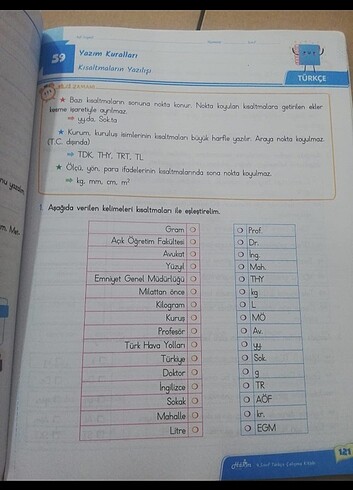 59
Yazım Kuralları
Kısaltmaların Yazılışı
TÜRKÇE
★ Bazı kısaltmaların sonuna nokta konur. Nokta koyulan kısaltmalara getirilen ekler
kesme işaretiyle ayrılmaz.
⇒ yy.da, Sok.ta
★ Kurum, kuruluş isimlerinin kısaltmaları büyük harfle yazılır. Araya nokta koyulmaz.
(T.C. dışında)
⇒ TDK, THY, TRT, TL
★ Ölçü, yön, para ifadelerinin kısaltmalarında sona nokta koyulmaz.
⇒ kg, mm, cm, m²
1. Aşağıda verilen kelimeleri kısaltmaları ile eşleştirelim.
Gram
Açık Öğretim Fakültesi
Avukat
Yüzyıl
Emniyet Genel Müdürlüğü
Milattan önce
Kilogram
Kuruş
Profesör
Türk Hava Yolları
Türkiye
Doktor
İngilizce
Sokak
Mahalle
Litre
Prof.
Dr.
İng.
Mah.
THY
kg
L
MÖ
Av.
yy.
Sok.
g
TR
AÖF
kr.
EGM
4. Sınıf Türkçe Çalışma Kitabı
121